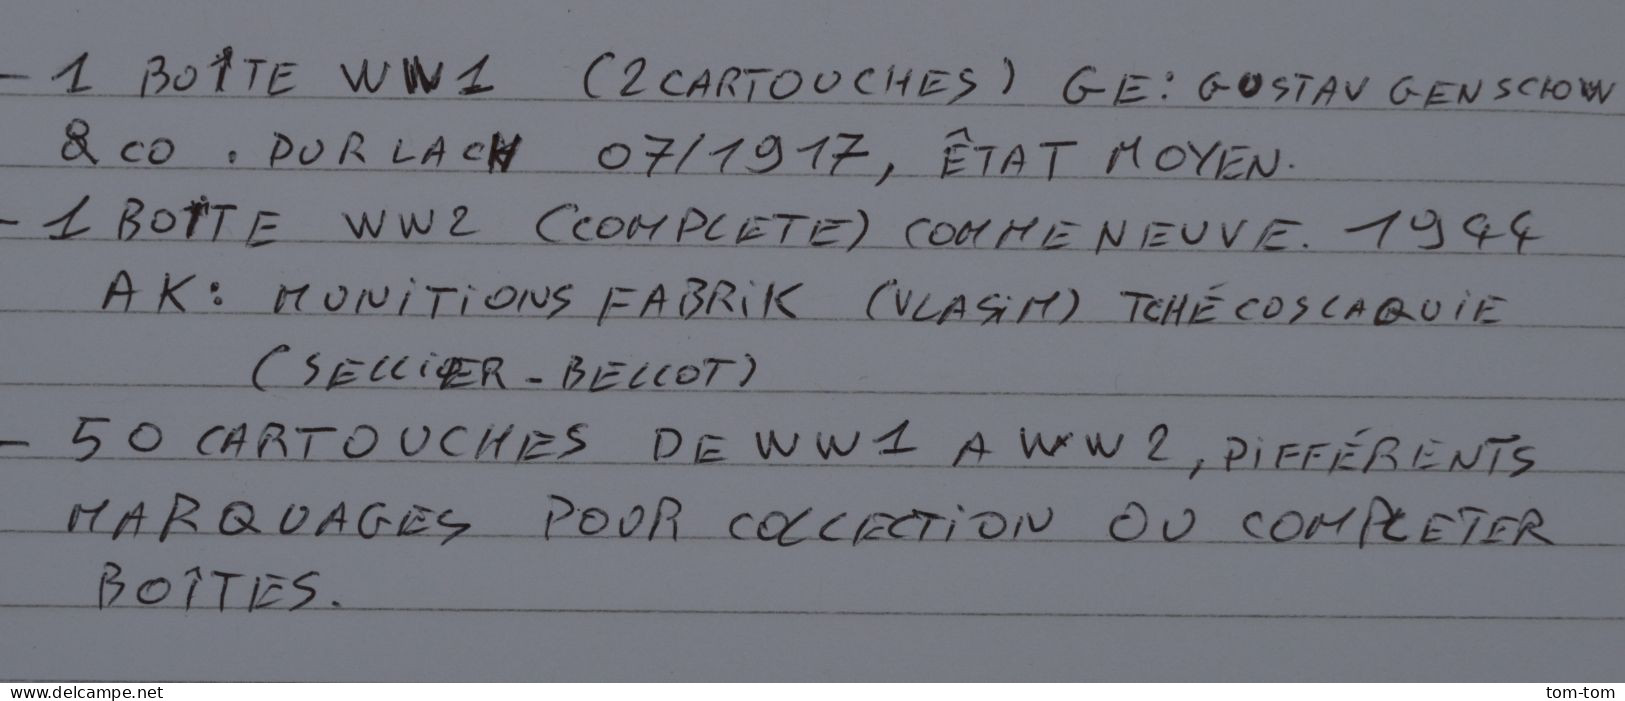 - 1 BOÎTE WW1 (2 CARTOUCHES) GE: GUSTAV GENSCHOW
& CO . DURLACH 07/1917, ÊTAT MOYEN.
- 1 BOÎTE WW2 (COMPLETE) COMME NEUVE. 1944
AK: MUNITIONS FABRIK (VLASIM) TCHÉCOSLAQUIE
(SELLIER - BELLOT)
- 50 CARTOUCHES DE WW1 A WW2, DIFFÉRENTS
MARQUAGES POUR COLLECTION OU COMPLETER
BOÎTES.
www.delcampe.net
tom-tom